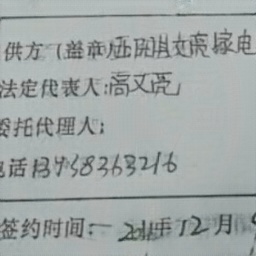 供方(盖章)
法定代表人:高文亮
委托代理人:
电话13458363216
签约时间:2011年12月